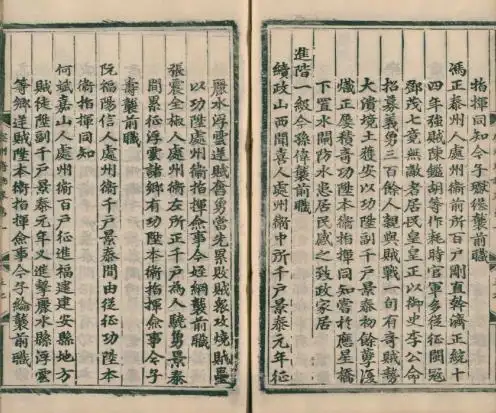 指揮同知今子璇襲前職
馮正泰州人處州衛前所百户剛直幹濟正統十
四年強賊陳鑑胡等作耗時官軍多從征閩冠
鄧茂七竟無敵者居民皇皇正以御史李公命
招募義勇三百餘人親與賊戰一旬有奇賊勢
大潰境土獲安以功陞副千戶景泰初餘孽復
熾正屢積奇功陞本衛指揮同知嘗於應星橋
下置水閘防水患居民感之致政家居
進階一級今孫偉襲前職
續政山西聞喜人處州衛中所千戶景泰元年征
麗水浮雲達賊奮勇當先累敗賊衆攻境賊壘
以功陞處州衛指揮僉事今姪綱襲前職
張震全椒人處州衛左所正千戶為人驍勇景泰
間累征浮雲諸鄉有功陞本衛指揮僉事今子
壽襲前職
阮福陽信人處州衛千戶景泰間由從征功陞本
衛指揮同知
何斌嘉山人處州衛百戶征進福建建安縣地方
賊徒陞副千戶景泰元年又進擊麗水縣浮雲
等鄉達賊陞本衛指揮僉事今子綸襲前職